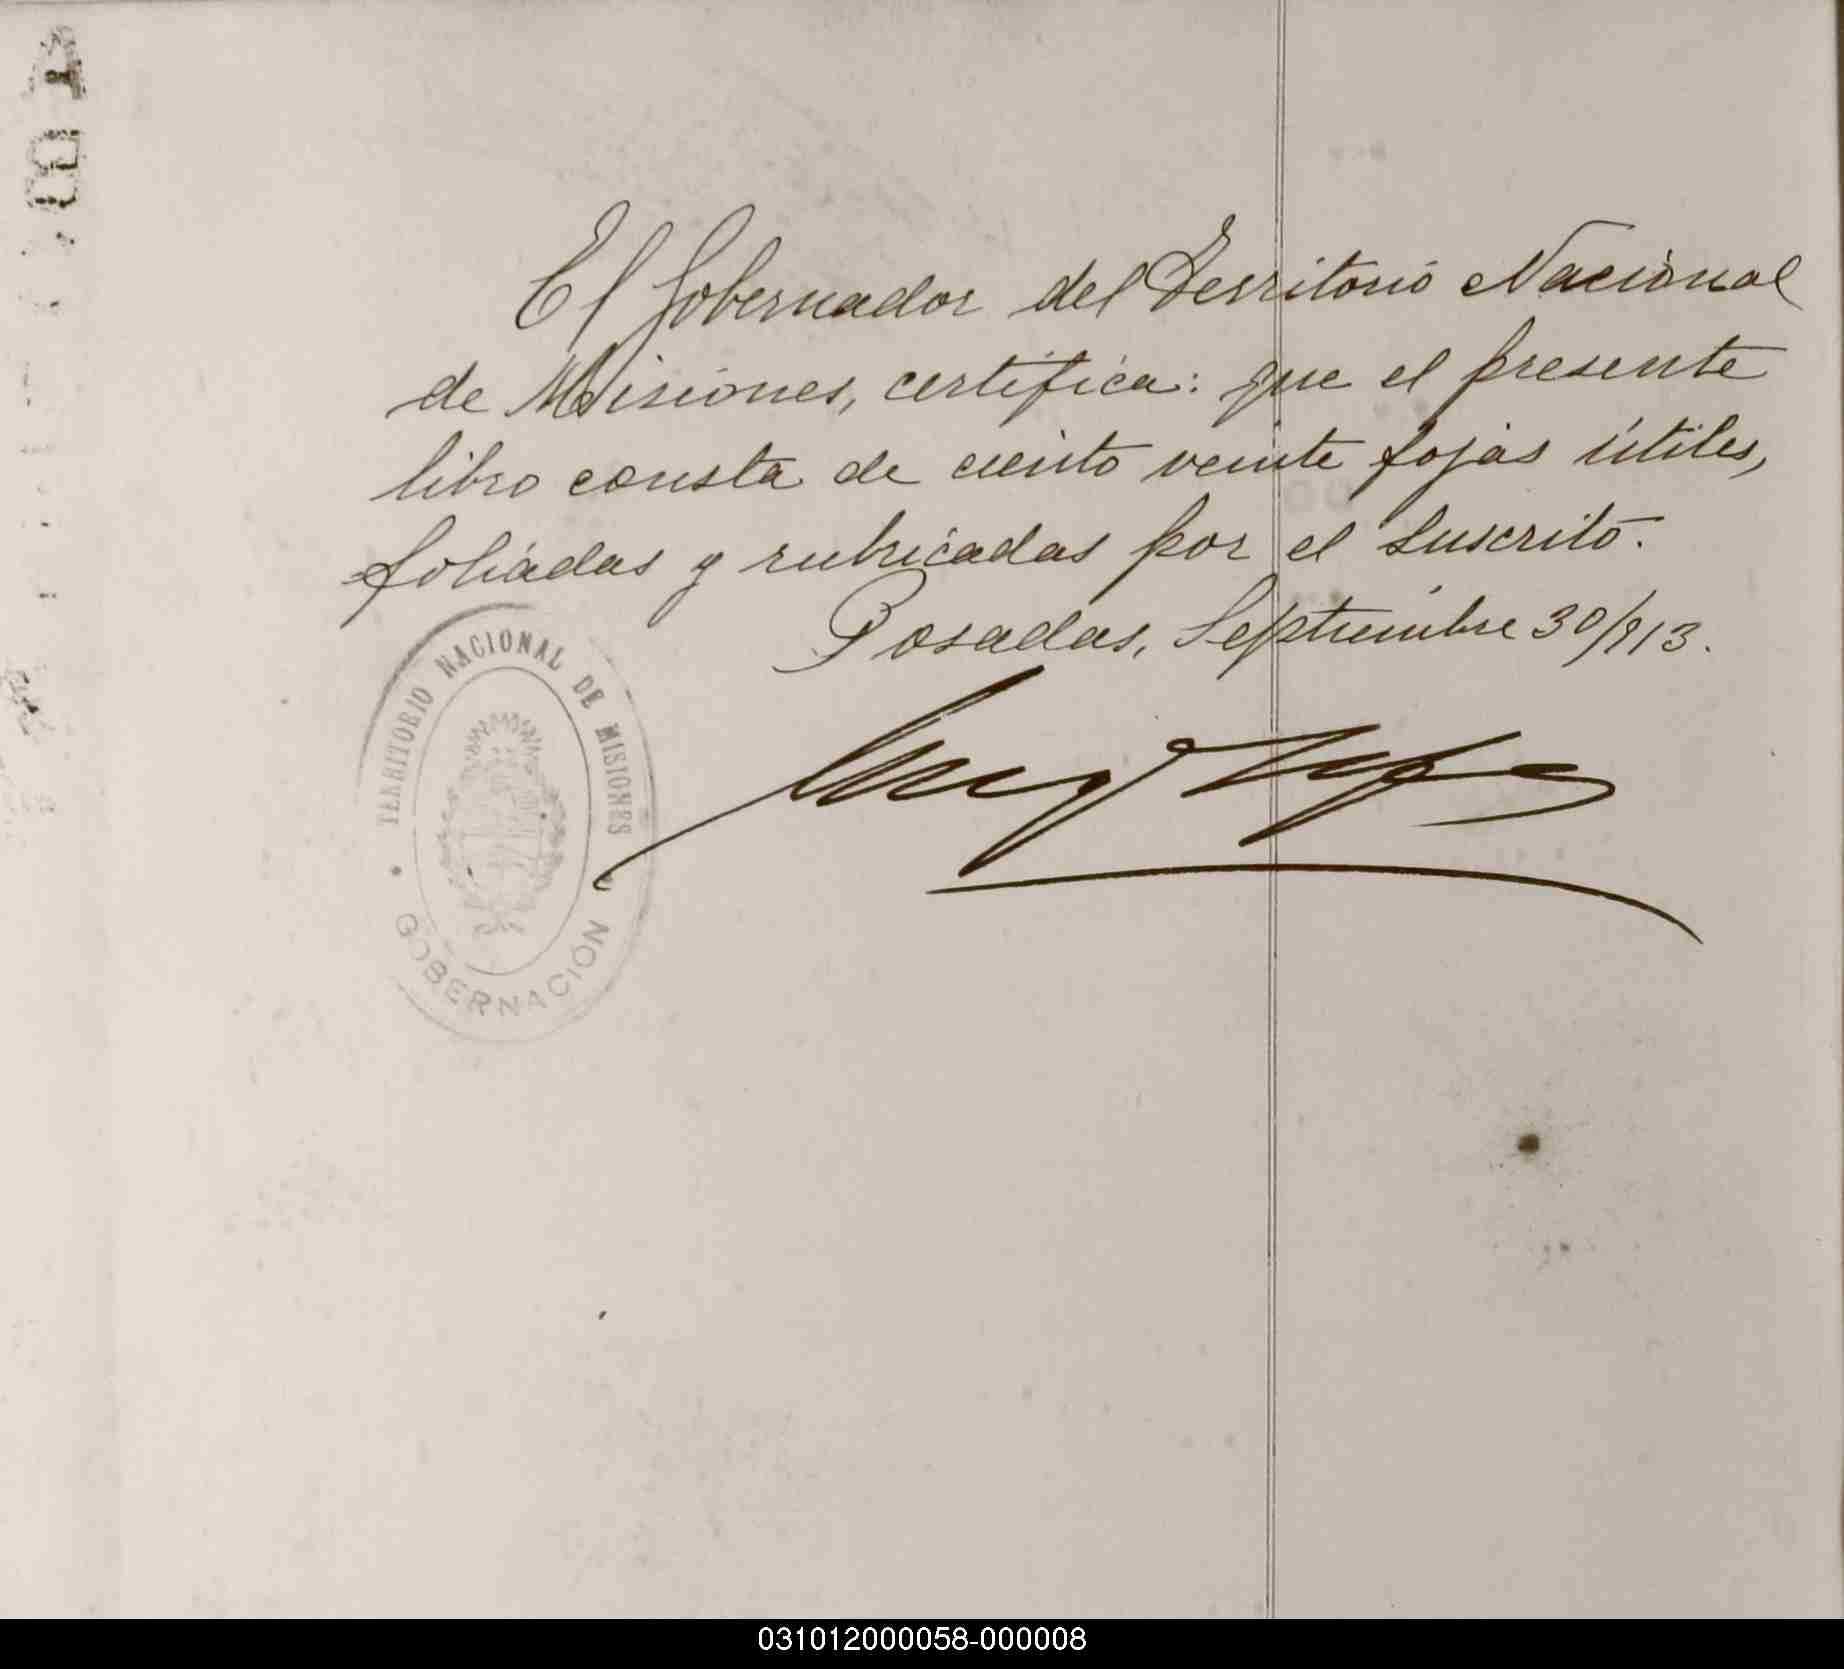 El Gobernador del Territorio Nacional
de Misiones, certifica: que el presente
libro consta de ciento veinte fojas útiles,
foliadas y rubricadas por el suscrito.
Posadas, Septiembre 30/913.
TERRITORIO NACIONAL DE MISIONES
GOBERNACIÓN
031012000058-000008